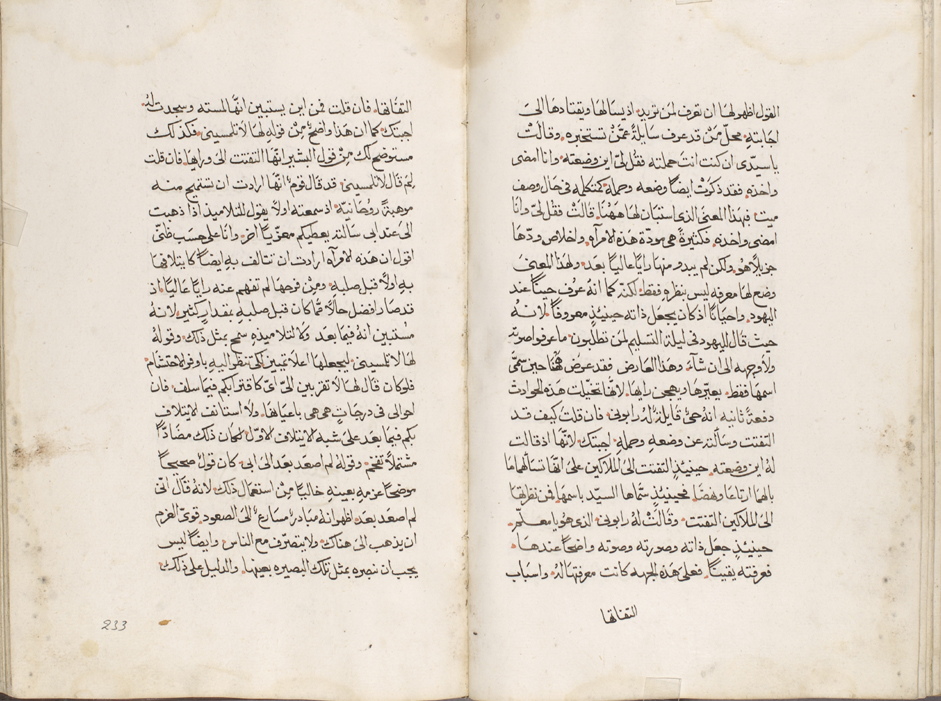 القول اظهر لها ان تعرف لمن تريد اذ يسالها ويقتادها الى
اجابته محل مَن قد عرف سايلة عمّن تستخبره وقالت
يا سيّدي ان كنت انت حملته فقل لي اين وضعته وانا امضى
واخذه فقد ذكرت ايضًا وضعه وحمله كمتكلمه في حال وصف
ميت فهذا المعنى الذي استبان لها ههنا قالت فقل لي وانا
امضى واخذه فكثيرة هي مودّة هذه الامرأه واخلاص ودّها
جزيلًا هو ولكن لم يبدو منها رايًا عاليًا بعد ولهذا المعنى
وضع لها معرفه ليس بنظره فقط لكنّه كما انه عرف حينًا عند
اليهود واحيانًا اذ كان يجعل ذاته حينيذٍ معروفًا لانه
حيث قال لليهود في ليلة التسليم لمن تطلبون ما عرفوا صوته
ولا وجهه الى ان شآء وهذا العارض فقد عرض ههنا حين سمّى
اسمها فقط يعيّرها ويهجى رايها لانها تخيلت هذه الحوادث
دفعة ثانيه انه حيّ قايلة له رابوني فان قلت كيف قد
التفتت وسألته عن وضعه وحمله اجبتك لانّها اذ قالت
له اين وضعته حينيذٍ التفتت الى الملاكين على انها تسألهما ما
بالهما ارتاعا ونهضا فحينيذٍ سمّاها السيّد باسمها فمن نظرتها
الى الملاكين التفتت وقالت له رابوني الذي هو يا معلّم
حينيذٍ جعل ذاته وصورته وصوته واضحًا عندها
فعرفته يقينًا فعلى هذه الجهه كانت معرفتها له واسباب
التفاتها
التفاتها فان قلت فمن اين يستبين انّها لمسته وسجدت له
اجبتك كما ان هذا واضح مِن قوله لها لا تلمسيني فكذلك
مستوضح لك مِن قول البشير انها التفتت الى وراها فان قلت
لِمَ قال لا تلمسيني قد قال قوم انّها ارادت ان تستميح منه
موهبةً روحانيّه اذ سمعته اولًا يقول للتلاميذ اذا ذهبت
الى عند ابي سالته يعطيكم معزّيًا اخر وانا على حسب ظنّي
اقول ان هذه الامرأه ارادت ان تتالف به ايضًا كايتلافها
به اولًا قبل صلبه ومن فرحها لم تفهم عنه رايًا عاليًا اذ
قد صار افضل حالًا ممّا كان قبل صلبه بمقدار كثير لانه
مستبين انه فيما بعد ولا لتلاميذه سمح بمثل ذلك وقوله
لها لا تلمسيني ليجعلها اعلا تميين لكي تنظر اليه باوفر الاحتشام
فلو كان قال لها لا تقتربين اليّ اي كاقترابكم فيما سلف فان
احوالي في درجات هي هي باعيانها ولا استانف لايتلاف
بكم فيما بعد على شبه الايتلاف الاول لكان ذلك مضادًا
مشتملًا تفخم وقوله لم اصعد بعد الى ابي كان قوله صحيحًا
موضحًا عزمه بعينه خاليًا مِن استعمال ذلك لانه قال انى
لم اصعد بعد اظهر انه مبادر مسارع الى الصعود قوىّ العزم
ان يذهب الى هناك ولا يتصرّف مع الناس وايضًا ليس
يجب ان نبصره بمثل تلك البصيره بعينها والدليل على ذلك
233